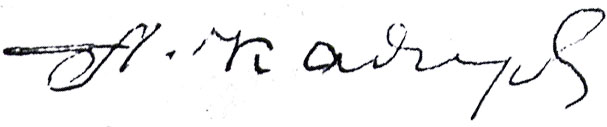 А. Кадыров